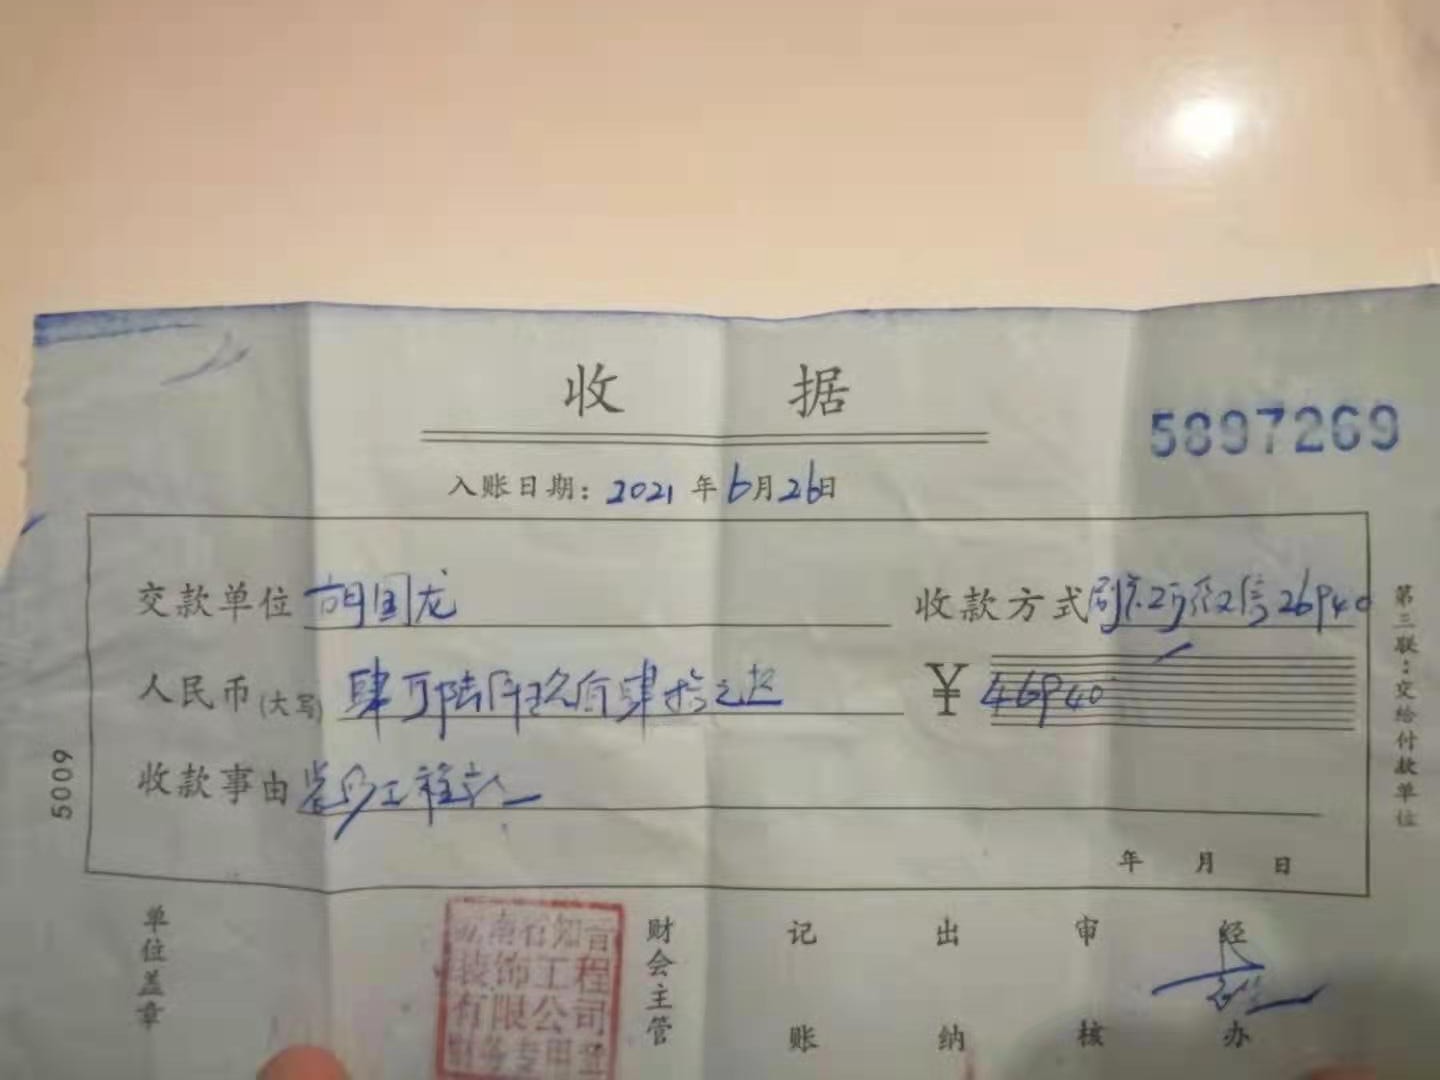 收据
5897269
入账日期：2021年6月26日
交款单位 胡国龙 收款方式 刷卡2万 微信26940
人民币(大写) 肆万陆仟玖佰肆拾元整 ￥46940
收款事由
年 月 日
5009
第三联：交给付款单位
单位盖章 财会主管 记账 出纳 审核 经办
南省知言
装饰工程
有限公司
财务专用章